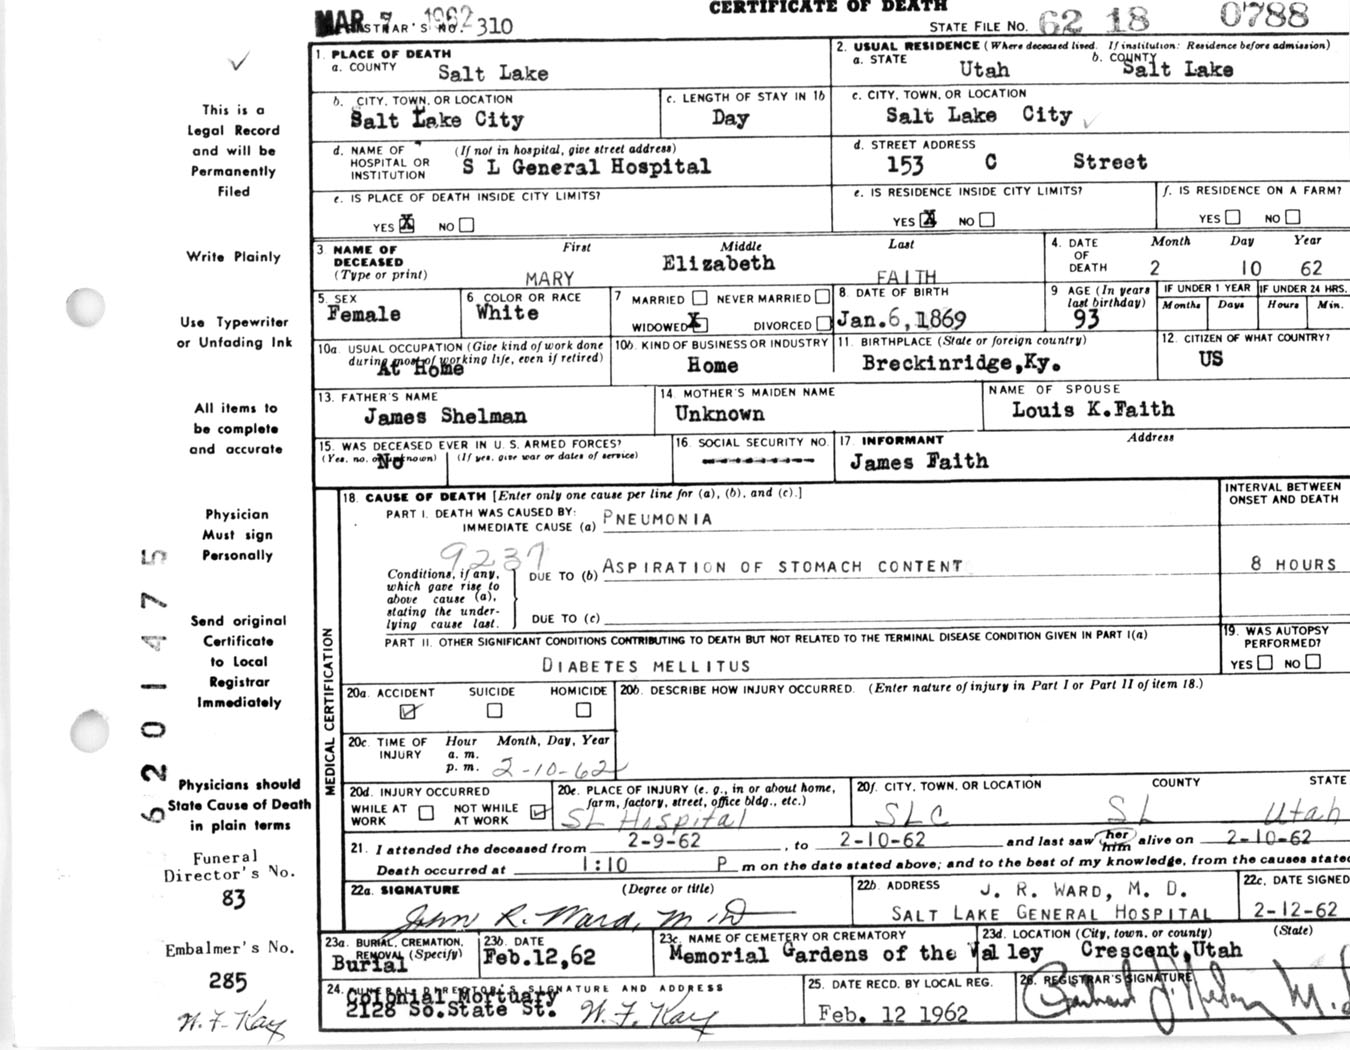 CERTIFICATE OF DEATH
MAR 7 1962
REGISTRAR'S NO. 310
STATE FILE NO. 62 18 0788
This is a
Legal Record
and will be
Permanently
Filed
Write Plainly
Use Typewriter
or Unfading Ink
All items to
be complete
and accurate
Physician
Must sign
Personally
Send original
Certificate
to Local
Registrar
Immediately
Physicians should
State Cause of Death
in plain terms
Funeral
Director's No.
83
Embalmer's No.
285
W. F. Kay
6201475
1. PLACE OF DEATH
a. COUNTY Salt Lake
2. USUAL RESIDENCE (Where deceased lived. If institution: Residence before admission)
a. STATE Utah b. COUNTY Salt Lake
b. CITY, TOWN, OR LOCATION Salt Lake City
c. LENGTH OF STAY IN 1b Day
c. CITY, TOWN, OR LOCATION Salt Lake City
d. NAME OF HOSPITAL OR INSTITUTION (If not in hospital, give street address) S L General Hospital
d. STREET ADDRESS 153 C Street
e. IS PLACE OF DEATH INSIDE CITY LIMITS? YES X NO
e. IS RESIDENCE INSIDE CITY LIMITS? YES X NO
f. IS RESIDENCE ON A FARM? YES NO
3 NAME OF DECEASED (Type or print) First MARY Middle Elizabeth Last FAITH
4. DATE OF DEATH Month 2 Day 10 Year 62
5. SEX Female
6 COLOR OR RACE White
7 MARRIED NEVER MARRIED WIDOWED X DIVORCED
8. DATE OF BIRTH Jan. 6, 1869
9 AGE (In years last birthday) 93
IF UNDER 1 YEAR Months Days
IF UNDER 24 HRS. Hours Min.
10a. USUAL OCCUPATION (Give kind of work done during most of working life, even if retired) At Home
10b. KIND OF BUSINESS OR INDUSTRY Home
11. BIRTHPLACE (State or foreign country) Breckinridge, Ky.
12. CITIZEN OF WHAT COUNTRY? US
13. FATHER'S NAME James Shelman
14 MOTHER'S MAIDEN NAME Unknown
NAME OF SPOUSE Louis K. Faith
15. WAS DECEASED EVER IN U. S. ARMED FORCES? (Yes, no, or unknown) No (If yes, give war or dates of service)
16. SOCIAL SECURITY NO. ----------
17. INFORMANT James Faith Address
MEDICAL CERTIFICATION
18. CAUSE OF DEATH [Enter only one cause per line for (a), (b), and (c).]
INTERVAL BETWEEN ONSET AND DEATH
PART I. DEATH WAS CAUSED BY:
IMMEDIATE CAUSE (a) PNEUMONIA
9237
Conditions, if any, which gave rise to above cause (a), stating the underlying cause last.
DUE TO (b) ASPIRATION OF STOMACH CONTENT 8 HOURS
DUE TO (c)
PART II. OTHER SIGNIFICANT CONDITIONS CONTRIBUTING TO DEATH BUT NOT RELATED TO THE TERMINAL DISEASE CONDITION GIVEN IN PART I(a)
DIABETES MELLITUS
19. WAS AUTOPSY PERFORMED? YES NO
20a. ACCIDENT SUICIDE HOMICIDE
20b. DESCRIBE HOW INJURY OCCURRED. (Enter nature of injury in Part I or Part II of item 18.)
20c. TIME OF INJURY Hour a. m. p. m. Month, Day, Year 2-10-62
20d. INJURY OCCURRED WHILE AT WORK NOT WHILE AT WORK
20e. PLACE OF INJURY (e. g., in or about home, farm, factory, street, office bldg., etc.) SL Hospital
20f. CITY, TOWN, OR LOCATION SLC COUNTY SL STATE Utah
21. I attended the deceased from 2-9-62, to 2-10-62 and last saw her him alive on 2-10-62
Death occurred at 1:10 P m on the date stated above; and to the best of my knowledge, from the causes stated
22a. SIGNATURE (Degree or title) John R. Ward, M.D.
22b. ADDRESS J. R. WARD, M. D.
SALT LAKE GENERAL HOSPITAL
22c. DATE SIGNED 2-12-62
23a. BURIAL, CREMATION, REMOVAL (Specify) Burial
23b. DATE Feb. 12, 62
23c. NAME OF CEMETERY OR CREMATORY Memorial Gardens of the Valley
23d. LOCATION (City, town, or county) (State) Crescent, Utah
24. FUNERAL DIRECTOR'S SIGNATURE AND ADDRESS
Colonial Mortuary
2128 So. State St. W. F. Kay
25. DATE RECD. BY LOCAL REG. Feb. 12 1962
26. REGISTRAR'S SIGNATURE